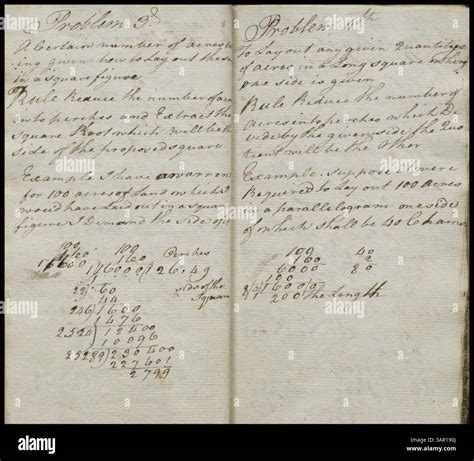 Problem 3d
A Certain number of acres be
ing given how to Lay out the
in a square figure
Rule Reduce the number of acr
into perches and Extract the
Square Root which will be the
side of the proposed square
Example I have a warrent
for 100 acres of Land which I
would have Laid out in a squa
figure I Demand the Side of
100
160
16000
100
160
16000 ( 126,49
Perches
Side of the
Square
22 ) 60
44
246 ) 1600
1476
2524 ) 12400
10096
25289 ) 230400
227601
2799
Problem 4th
To Lay out any given Quantity
of acres in a Long square
one side is given
Rule Reduce the number of
Acres into perches which Di
vide by the given side the Quo
tient will be the Other
Example Suppose I were
Required to Lay out 100 Acres
in a parallelogram one side
of which shall be 40 Chains
100
160
6000
40
2
80
16000
200 the Length
alamy
Image ID: 3AR190J
www.alamy.com